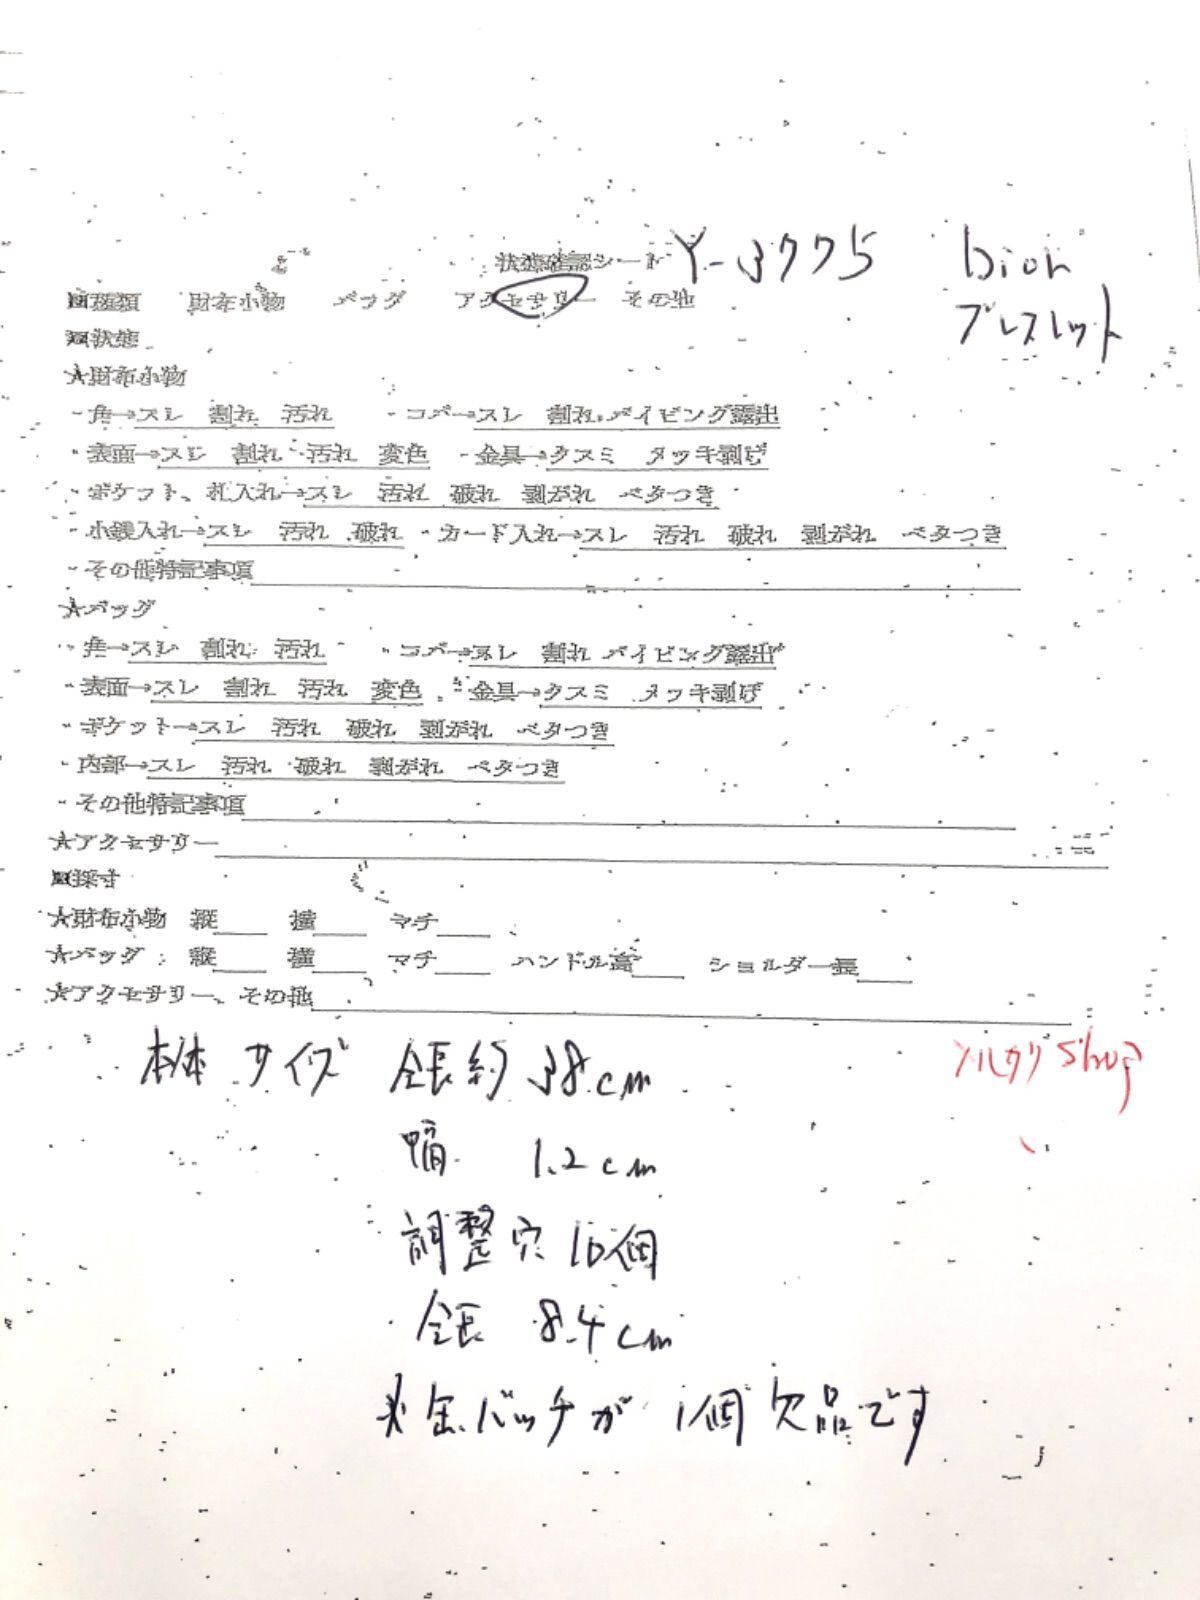 状態確認シート Y-3775 Dior
■種類 財布小物 バッグ アクセサリー その他
ブレスレット
■状態
★財布小物
・角→スレ 割れ 汚れ ・コバ→スレ 割れ パイピング露出
・表面→スレ 割れ 汚れ 変色 ・金具→クスミ メッキ剥げ
・ポケット、札入れ→スレ 汚れ 破れ 剥がれ ベタつき
・小銭入れ→スレ 汚れ 破れ ・カード入れ→スレ 汚れ 破れ 剥がれ ベタつき
・その他特記事項
★バッグ
・角→スレ 割れ 汚れ ・コバ→スレ 割れ パイピング露出
・表面→スレ 割れ 汚れ 変色 ・金具→クスミ メッキ剥げ
・ポケット→スレ 汚れ 破れ 剥がれ ベタつき
・内部→スレ 汚れ 破れ 剥がれ ベタつき
・その他特記事項
★アクセサリー
■採寸
★財布小物 縦 横 マチ
★バッグ 縦 横 マチ ハンドル高 ショルダー長
★アクセサリー、その他
本体 サイズ 全長約38cm
メルカリ Shop
幅 1.2cm
調整穴 10個
全長 8.4cm
※缶バッチが1個欠品です